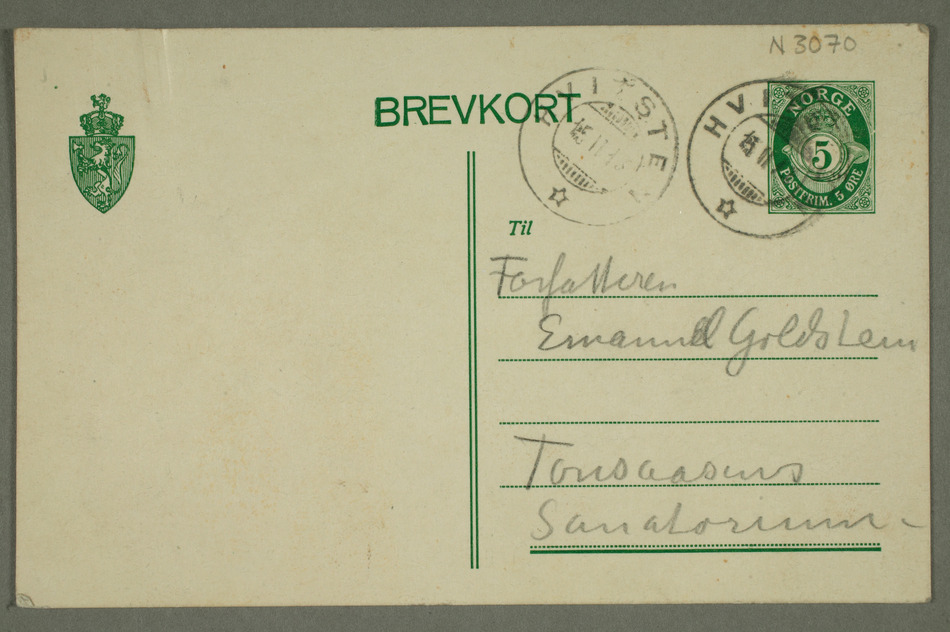 N 3070
BREVKORT
HVITSTEN
15 II
HVI
NORGE
5
POSTFRIM. 5 ØRE
Til
Forfatteren
Emanuel Goldstein
Tonsaasens
Sanatorium